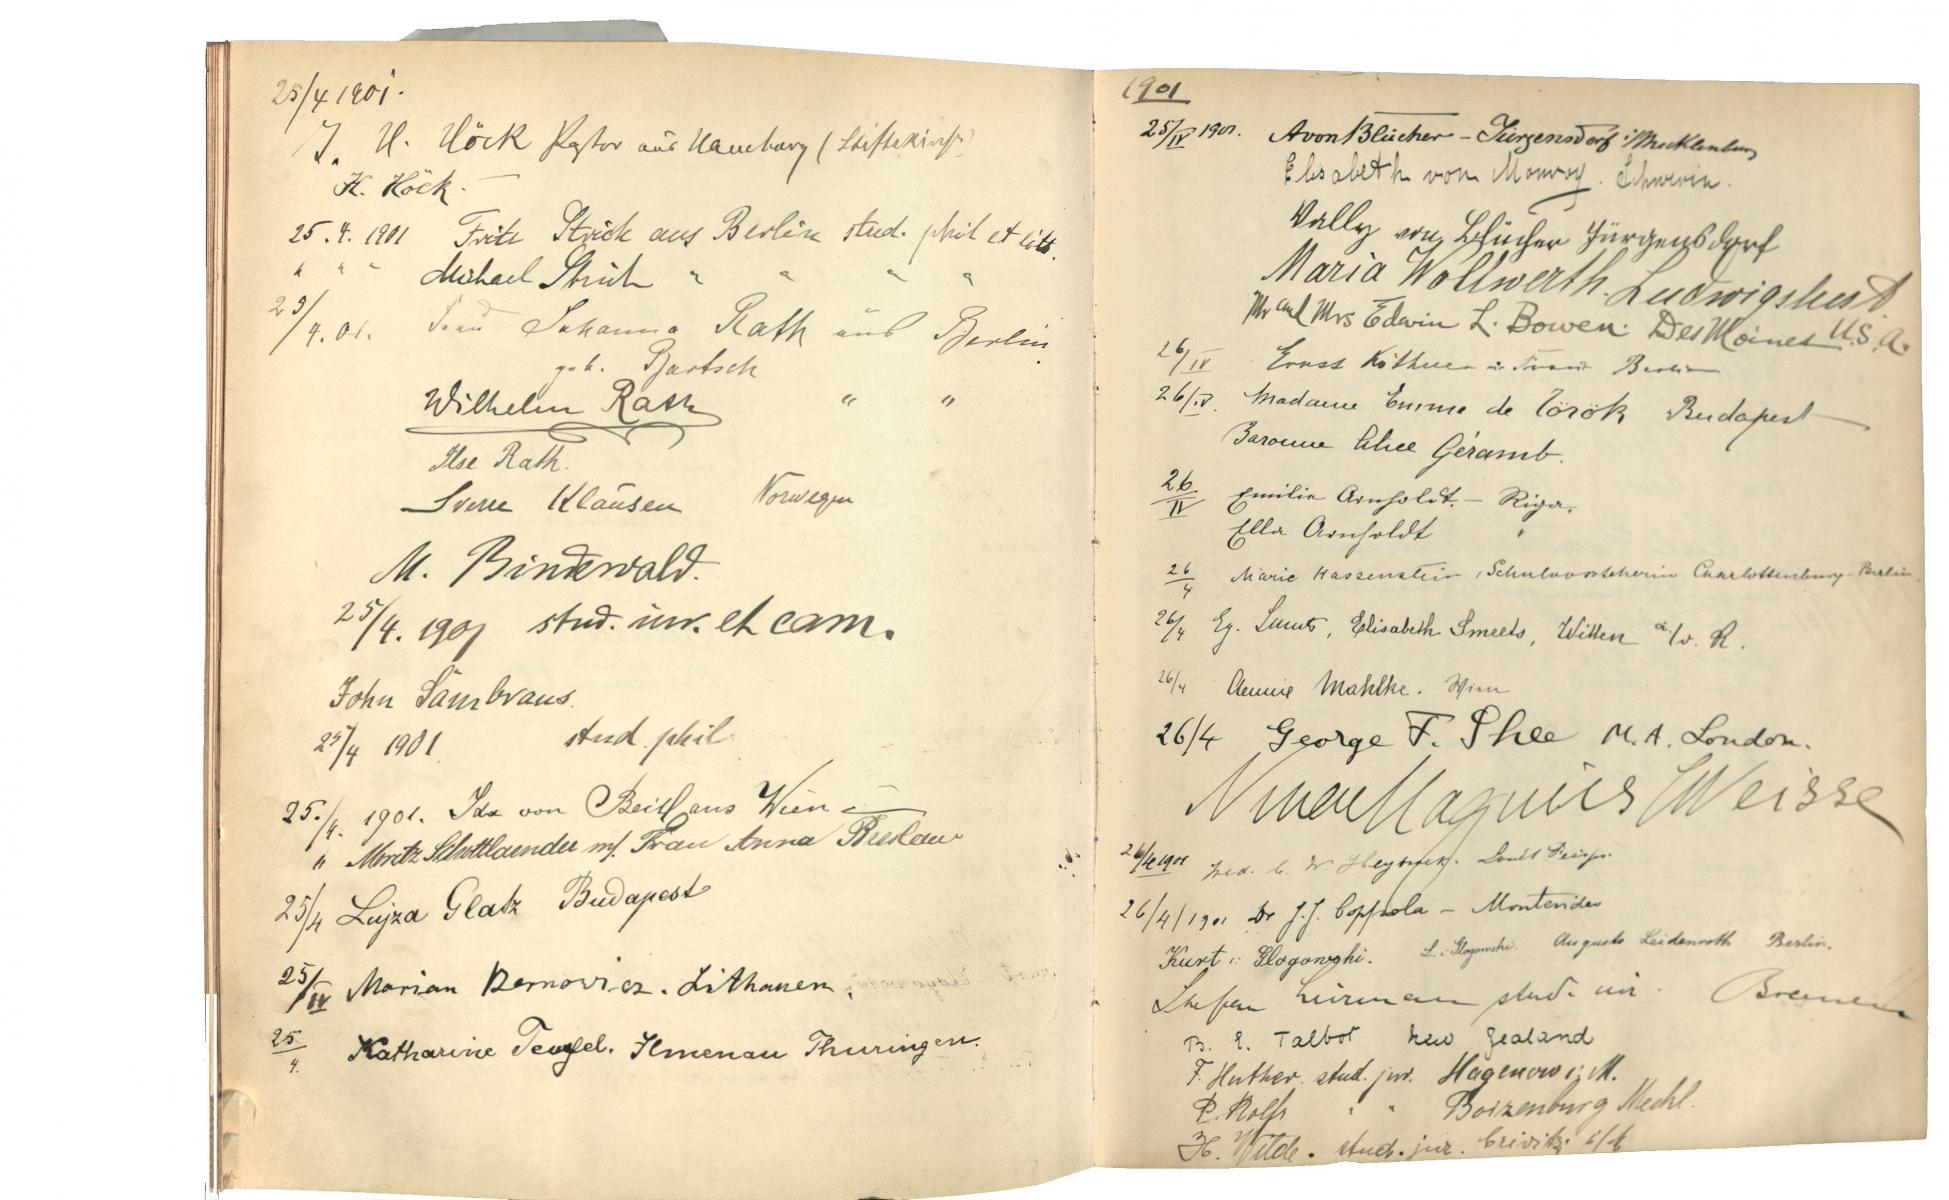 25/4 1901.
J. H. Höck Pastor aus Hamburg (Stiftskirche)
H. Höck. —
25. 4. 1901 Fritz Strich aus Berlin stud. phil et litt.
" " " Michael Strich " " " "
25/4. 01. Frau Johanna Rath aus Berlin.
geb. Bartsch
Wilhelm Rath " "
Ilse Rath.
Sverre Klausen Norwegen
M. Bindewald.
25/4. 1901 stud. iur. et cam.
John Sambraus.
25/4 1901 stud. phil.
25./4. 1901. Ida von aus Wien
" Moritz Schottlaender m/ Frau Anna Breslau
25/4 Lujza Glatz Budapest
25/IV Marian Lithauen.
25/4. Katharine Ilmenau Thuringen.
1901
25/IV 1901. A von Blücher – Jürgensdorf i/Mecklenburg
Elisabeth von Monroy. Schwerin.
Vally von Blücher Jürgensdorf
Maria Wollwerth. Ludwigslust.
Mr and Mrs Edwin L. Bowen. Des Moines U.S.A.
26/IV Ernst Köthner u. Frau Berlin
26/IV. Madame Emma de Török Budapest
Baronne Alice Géramb.
26/IV Emilie Arnholdt. – Riga.
Ella Arnholdt "
26/4 Marie Hassenstein, Schulvorsteherin Charlottenburg-Berlin.
26/4 Eg. Smeets, Elisabeth Smeets, Witten a/d. R.
26/4 Aennie Mahlke. Wien
26/4 George F. Shee M.A. London.
Nina Magnus Weisse
26/4 1901
26/4/1901 Dr J.J. Coppola – Montevideo
Kurt Glogowski. L. Glogowski. Auguste Leidenroth Berlin.
Stefan Lürman stud. iur. Bremen
B. E. Talbot New Zealand
F. Huther. stud. jur. Hagenow i. M.
P. Rolfs " " Boizenburg Meckl.
H. Wilde. stud. jur. Crivitz i/M